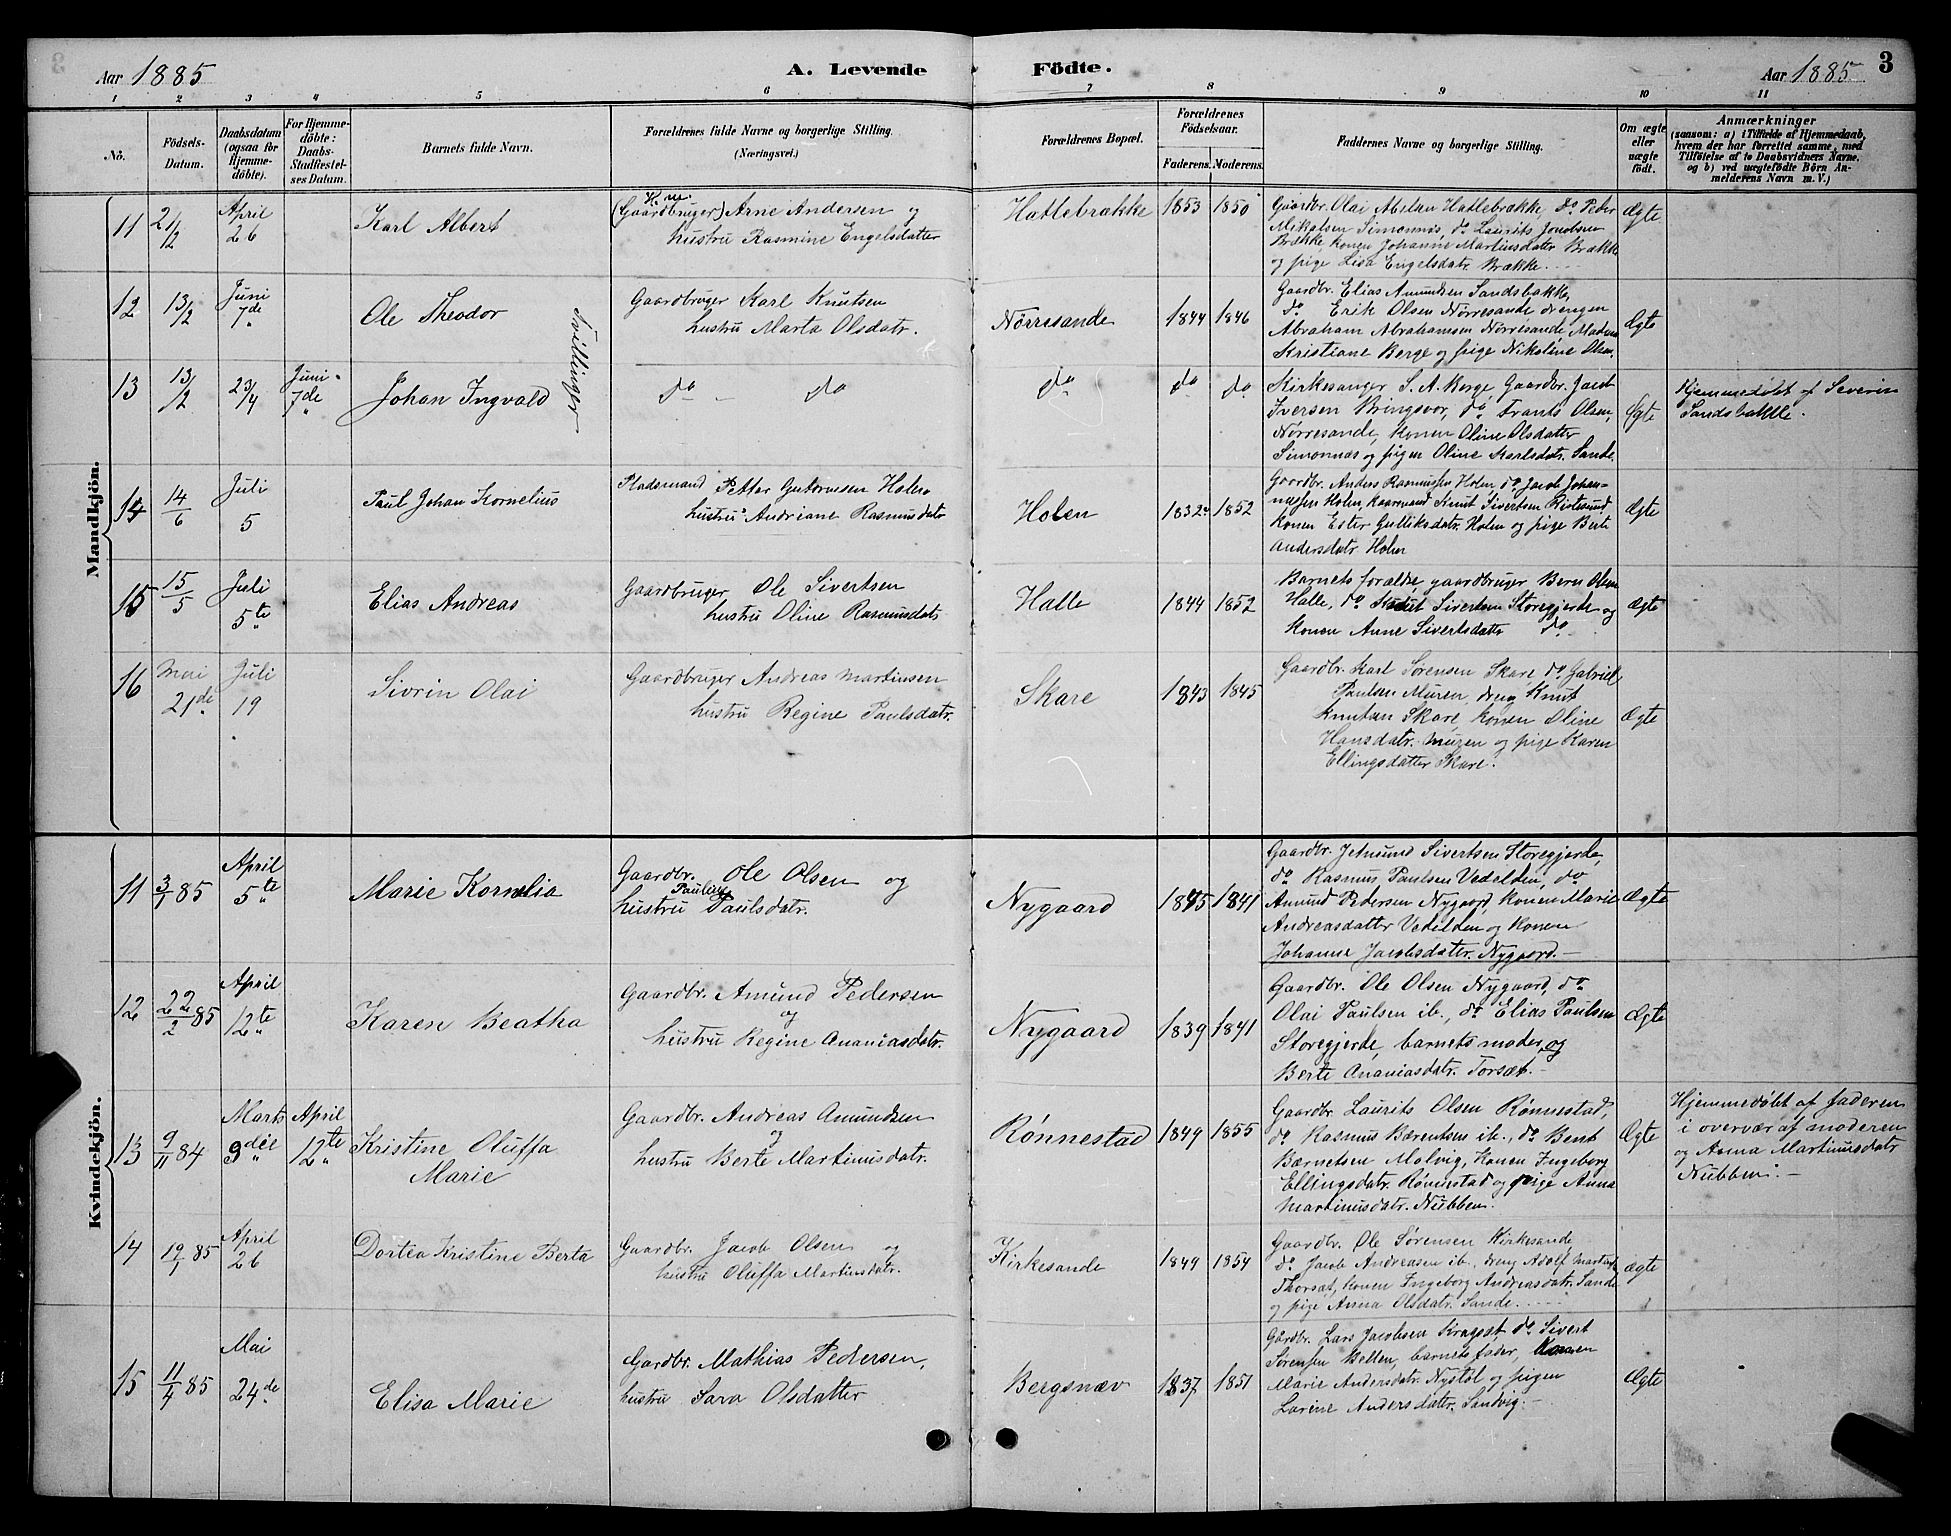 Aar 1885
A. Levende Födte.
Aar 1885
3
1 2 3 4 5 6 7 8 9 10 11
No.
Födsels-
Datum.
Daabsdatum
(ogsaa for
Hjemme-
döbte).
For Hjemme-
döbte:
Daabs-
Stadfæstel-
ses Datum.
Barnets fulde Navn.
Forældrenes fulde Navne og borgerlige Stilling.
(Næringsvei.)
Forældrenes Bopæl.
Forældrenes
Födselsaar.
Faderens. Moderens.
Faddernes Navne og borgerlige Stilling.
Om ægte
eller
uægte
födt.
Anmærkninger
(saasom: a) i Tilfælde af Hjemmedaab,
hvem der har forrettet samme, med
Tilföielse af to Daabsvidners Navne,
og b) ved uægtefödte Börn An-
melderens Navn m. V.)
Mandkjön.
11
21/12
April
26
Karl Albert
(Gaardbruger) Arne Andersen og
hustru Rasmine Engelsdatter
Hattebrække
1853 1850
Gaardbr. Olai Hattebrække, do Peder
Mikalsen Simonnös, do Laurits Jacobsen
Brække, konen Johanne Martinsdatter Brække
og pige Lisa Engelsdatr. Brække.
Ægte
12
13/2
Juni
7de
Ole Theodor
Tvillinger
Gaardbruger Karl Knutsen
hustru Marta Olsdatr.
Nörresande
1844 1846
Gaardbr. Elias Amundsen Sandsbakke,
do Erik Olsen Nörresande drengen
Abraham Abrahamsen Nörresande, Madam
Kristiane Berge og pige Nikoline Olsen.
Ægte
13
13/2
23/4
Juni
7de
Johan Ingvald
do - do
do
do do
Kirkesanger S. A. Berge, Gaardbr. Jacob
Iversen Bringsvor, do Frants Olsen,
Nörresande, konen Oline Olsdatter
Simonnös og pigen Oline Karlsdatr. Sande.
Ægte
Hjemmedöbt af Severin
Sandsbakke.
14
14/6
Juli
5
Paul Johan Kornelius
Pladsmand Petter Guttormsen Holen
hustru Andriane Rasmusdatr
Holen
1832 1852
Gaardbr. Anders Rasmussen Holen do Jacob Johan-
nessen Holen, Kaarmand Knut Sivertsen Ristesund
konen Ester Gulliksdatr. Holen og pige Berte
Andersdatr. Holen
Ægte
15
15/5
Juli
5te
Elias Andreas
Gaardbruger Ole Sivertsen
hustru Oline Rasmusdatr
Halle
1844 1852
Barnets forældre, gaardbruger Bern Olsen
Halle, do Knut Sivertsen Storegjerde og
konen Anne Sivertsdatter do
Ægte
16
Mai
21de
Juli
19
Sivrin Olai
Gaardbruger Andreas Martinsen
hustru Regine Paulsdatr.
Skare
1843 1845
Gaardbr. Karl Sörensen Skare, do Gabriel
Paulsen Muren, dreng Knut
Knutsen Skare, konen Oline
Hansdatr. Muren og pige Karen
Ellingsdatter Skare.
Ægte
Kvindekjön.
11
3/1 85
April
5te
Marie Kornelia
Gaardbr. Ole Olsen og
Pauline
hustru Paulsdatr.
Nygaard
1845 1841
Gaardbr. Jetmund Sivertsen Storegjerde,
do Rasmus Paulsen Vedelden, do
Amund Pedersen Nygaard, konen Marie
Andreasdatter Vedelden og konen
Johanne Jacobsdatter. Nygaard.
Ægte
12
22/2 85
April
12te
Karen Beatha
Gaardbr. Amund Pedersen
og
hustru Regine Ananiasdatr.
Nygaard
1839 1841
Gaardbr. Ole Olsen Nygaard, do
Olai Paulsen ib., do Elias Paulsen
Storegjerde, barnets moder, og
Berte Ananiasdatr. Torsæt.
Ægte
13
9/11 84
Marts
9de
April
12te
Kristine Oluffa
Marie
Gaardbr. Andreas Amundsen
og
hustru Berte Martinusdatr.
Rönnestad
1849 1855
Gaardbr Laurits Olsen Rönnestad,
do Rasmus Bærentsen ib., do Bent
Bærnetsen Molvig, konen Ingeborg
Ellingsdatr. Rönnestad og pige Anna
Martinusdatr. Nubben.
Ægte
Hjemmedöbt af faderen
i overvær af moderen
og Anna Martinusdatr
Nubben.
14
19/1 85
April
26
Dortea Kristine Berta
Gaardbr. Jacob Olsen og
hustru Oluffa Martinsdatr.
Kirkesande
1849 1854
Gaardbr. Ole Sörensen Kirkesande
do Jacob Andreasen ib., dreng Adolf
Thorsæt, konen Ingeborg Andreasdatr. Sande
og pige Anna Olsdatr. Sande.
Ægte
15
11/4 85
Mai
24de
Elisa Marie
Gardbr. Mathias Pedersen,
hustru Sara Olsdatter
Bergsnæv
1837 1851
Gårdbr. Lars Jacobsen Kragset, do Sivert
Sörensen Belten, barnets fader, konen
Marie Andersdatr. Nystöl og pigen
Larine Andersdatter. Sandvig.
Ægte